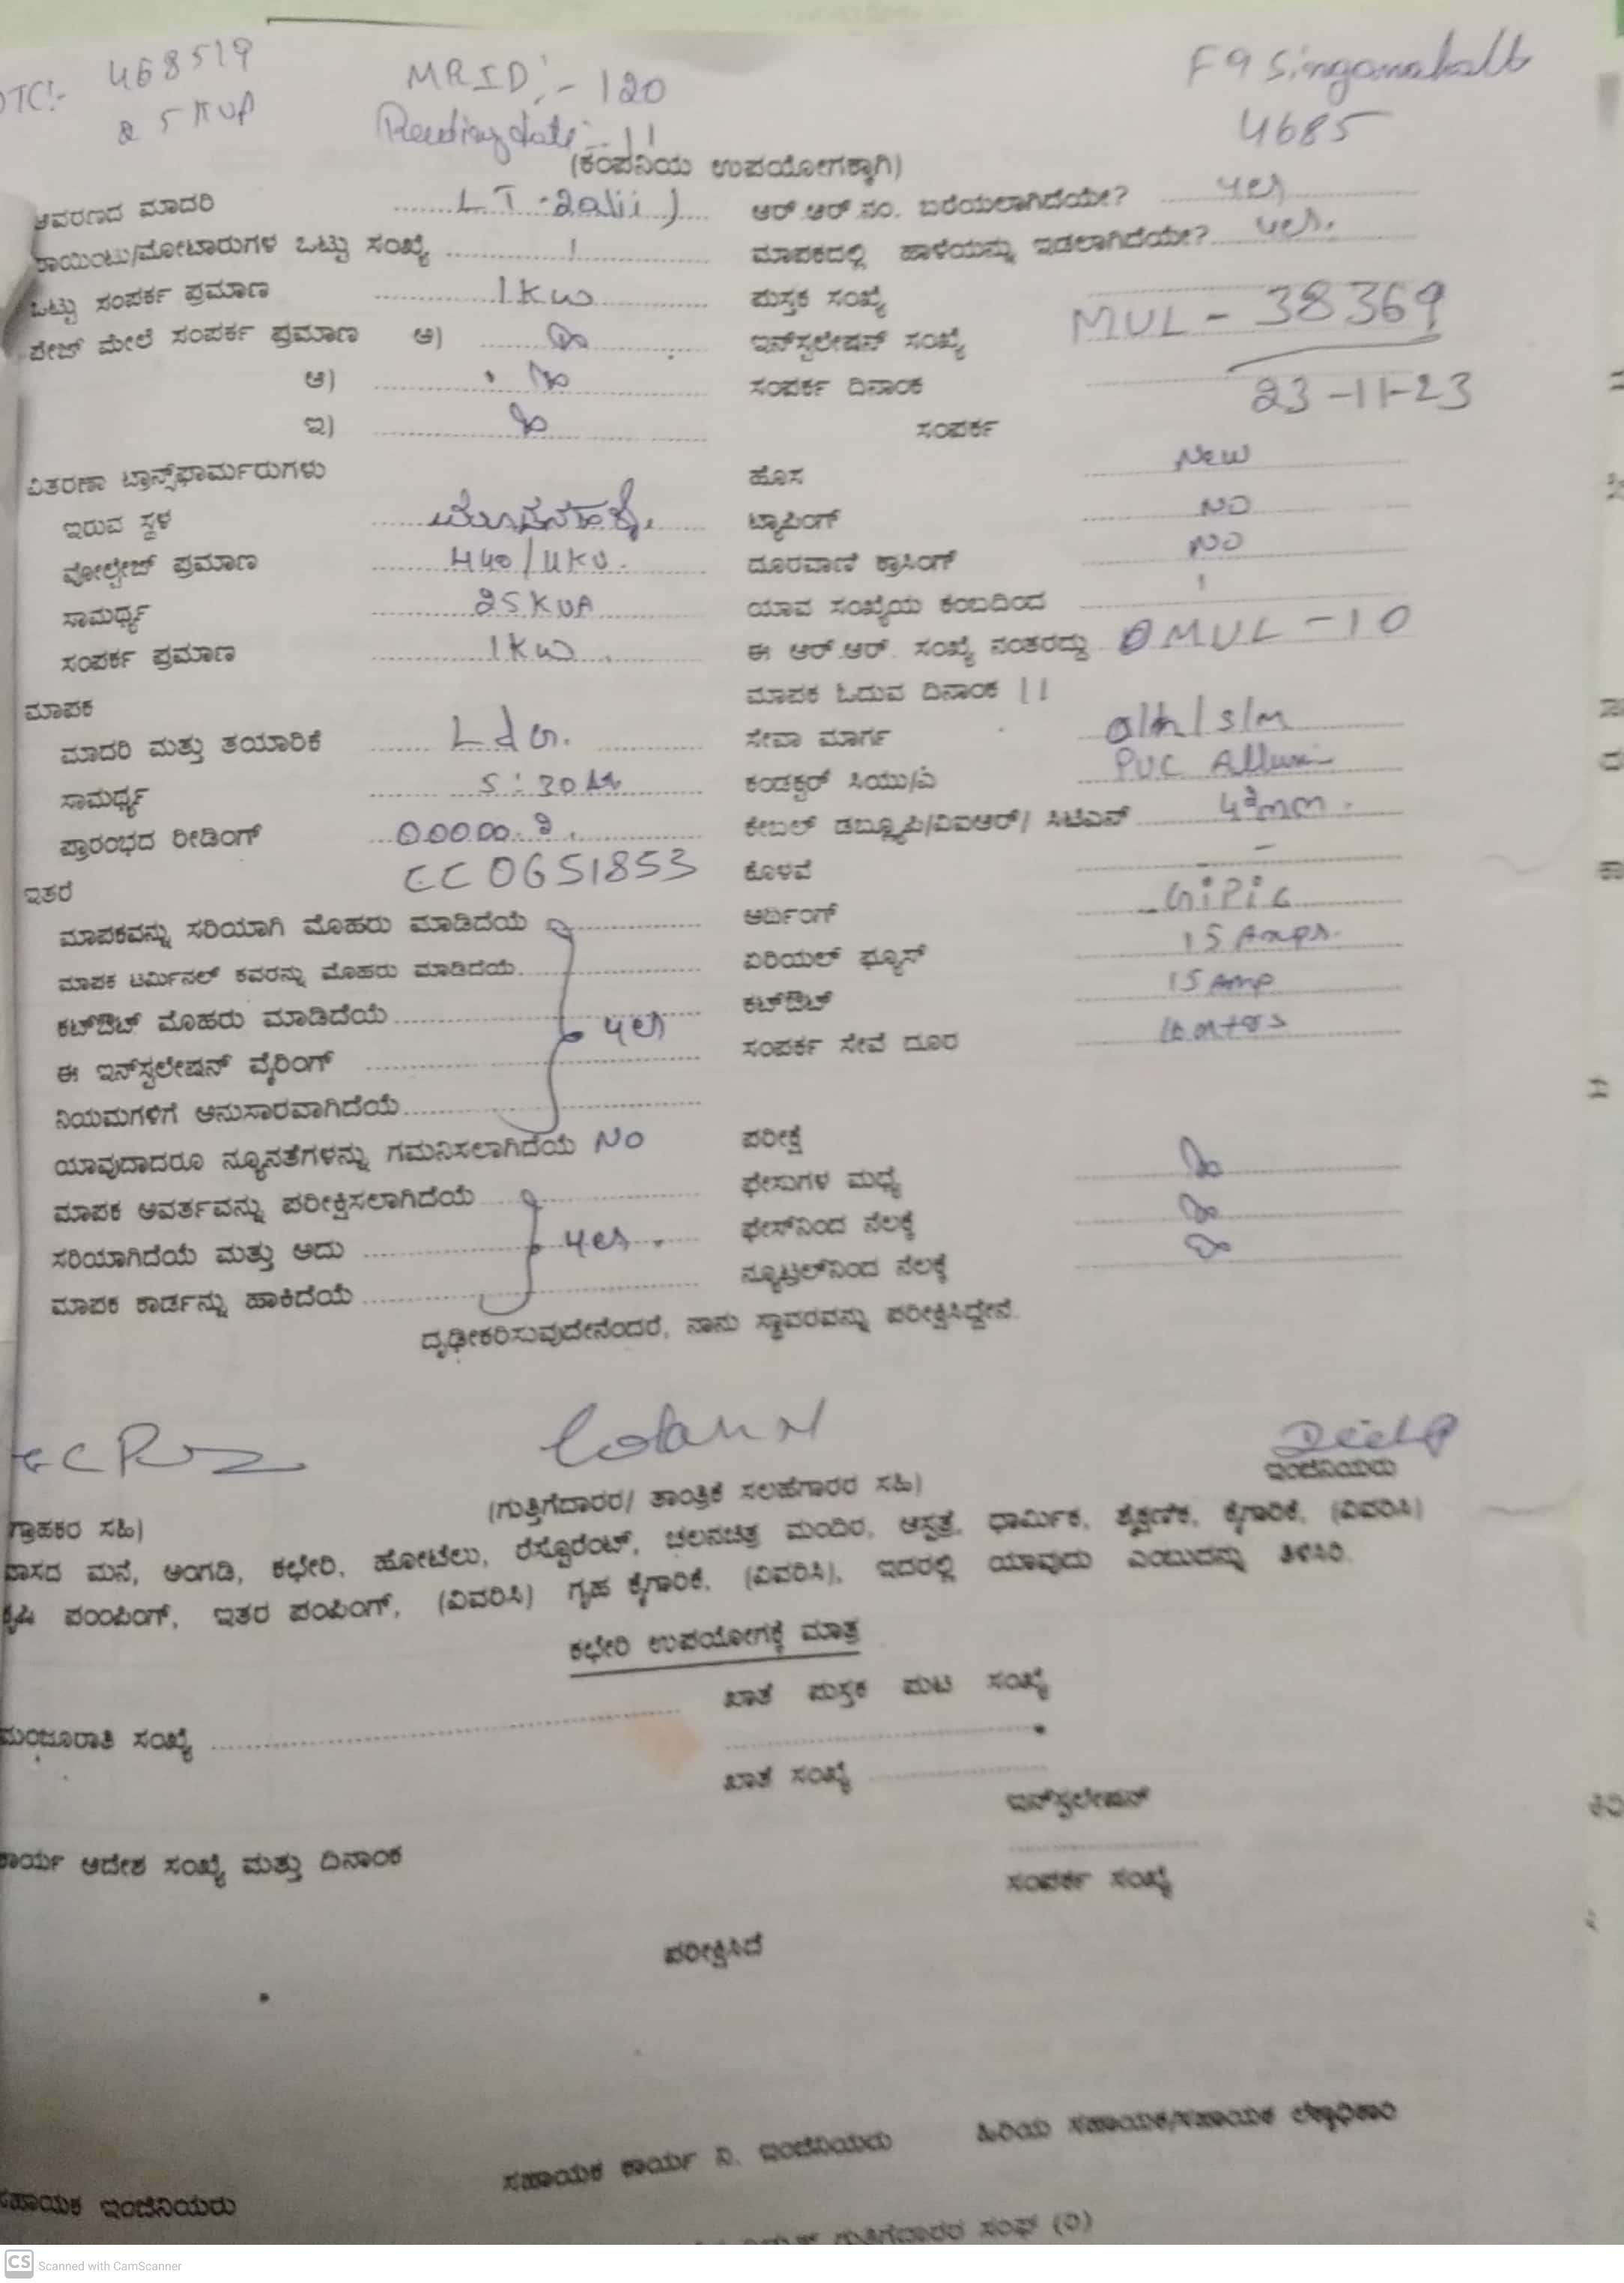 DTC:- 468519
25 KVA
MRID:- 120
Reading date:- 11
F9 Singanahalli
4685
(ಕಂಪನಿಯ ಉಪಯೋಗಕ್ಕಾಗಿ)
ಆವರಣದ ಮಾದರಿ LT-2a(ii)
ಆರ್.ಆರ್.ನಂ. ಬರೆಯಲಾಗಿದೆಯೇ? yes
ಪಾಯಿಂಟು/ಮೋಟಾರುಗಳ ಒಟ್ಟು ಸಂಖ್ಯೆ 1
ಮಾಪಕದಲ್ಲಿ ಹಾಳೆಯನ್ನು ಇಡಲಾಗಿದೆಯೇ? yes.
ಒಟ್ಟು ಸಂಪರ್ಕ ಪ್ರಮಾಣ 1Kw
ಪುಸ್ತಕ ಸಂಖ್ಯೆ
ಪೇಜ್ ಮೇಲೆ ಸಂಪರ್ಕ ಪ್ರಮಾಣ ಅ)
ಇನ್‌ಸ್ಟಲೇಷನ್ ಸಂಖ್ಯೆ MUL - 38369
ಆ)
ಸಂಪರ್ಕ ದಿನಾಂಕ 23-11-23
ಇ)
ಸಂಪರ್ಕ
ವಿತರಣಾ ಟ್ರಾನ್ಸ್‌ಫಾರ್ಮರುಗಳು
ಹೊಸ New
ಇರುವ ಸ್ಥಳ
ಟ್ಯಾಪಿಂಗ್ NO
ವೋಲ್ಟೇಜ್ ಪ್ರಮಾಣ 440/11KV.
ದೂರವಾಣಿ ಕ್ರಾಸಿಂಗ್ NO
ಸಾಮರ್ಥ್ಯ 25KVA
ಯಾವ ಸಂಖ್ಯೆಯ ಕಂಬದಿಂದ 1
ಸಂಪರ್ಕ ಪ್ರಮಾಣ 1Kw
ಈ ಆರ್.ಆರ್. ಸಂಖ್ಯೆ ನಂತರದ್ದು MUL - 10
ಮಾಪಕ
ಮಾಪಕ ಓದುವ ದಿನಾಂಕ 11
ಮಾದರಿ ಮತ್ತು ತಯಾರಿಕೆ L&G.
ಸೇವಾ ಮಾರ್ಗ o/h / s/m
ಸಾಮರ್ಥ್ಯ 5:30A
ಕಂಡಕ್ಟರ್ ಸಿಯು/ಎ PVC
ಪ್ರಾರಂಭದ ರೀಡಿಂಗ್ 00000.2.
ಕೇಬಲ್ ಡಬ್ಲ್ಯೂಪಿ/ವಿಐಆರ್/ ಸಿಟಿಎಸ್ 4²mm.
ಇತರೆ CC0651853
ಕೊಳವೆ -
ಮಾಪಕವನ್ನು ಸರಿಯಾಗಿ ಮೊಹರು ಮಾಡಿದೆಯೆ
ಆರ್ದಿಂಗ್ GiPiG
ಮಾಪಕ ಟರ್ಮಿನಲ್ ಕವರನ್ನು ಮೊಹರು ಮಾಡಿದೆಯೆ
ಏರಿಯಲ್ ಫ್ಯೂಸ್ 15 Amps.
ಕಟ್‌ಔಟ್ ಮೊಹರು ಮಾಡಿದೆಯೆ yes
ಕಟ್‌ಔಟ್ 15 Amp
ಈ ಇನ್‌ಸ್ಟಲೇಷನ್ ವೈರಿಂಗ್
ಸಂಪರ್ಕ ಸೇವೆ ದೂರ
ನಿಯಮಗಳಿಗೆ ಅನುಸಾರವಾಗಿದೆಯೆ
ಯಾವುದಾದರೂ ನ್ಯೂನತೆಗಳನ್ನು ಗಮನಿಸಲಾಗಿದೆಯೆ NO
ಪರೀಕ್ಷೆ
ಮಾಪಕ ಆವರ್ತವನ್ನು ಪರೀಕ್ಷಿಸಲಾಗಿದೆಯೆ
ಫೇಸುಗಳ ಮಧ್ಯೆ
ಸರಿಯಾಗಿದೆಯೆ ಮತ್ತು ಅದು yes.
ಫೇಸ್‌ನಿಂದ ನೆಲಕ್ಕೆ
ಮಾಪಕ ಕಾರ್ಡನ್ನು ಹಾಕಿದೆಯೆ
ನ್ಯೂಟ್ರಲ್‌ನಿಂದ ನೆಲಕ್ಕೆ
ದೃಢೀಕರಿಸುವುದೇನೆಂದರೆ, ನಾನು ಸ್ಥಾವರವನ್ನು ಪರೀಕ್ಷಿಸಿದ್ದೇನೆ.
ಇಂಜಿನಿಯರು
(ಗುತ್ತಿಗೆದಾರರ/ ತಾಂತ್ರಿಕ ಸಲಹೆಗಾರರ ಸಹಿ)
ಗ್ರಾಹಕರ ಸಹಿ)
ವಾಸದ ಮನೆ, ಅಂಗಡಿ, ಕಛೇರಿ, ಹೋಟೆಲು, ರೆಸ್ಟೊರೆಂಟ್, ಚಲನಚಿತ್ರ ಮಂದಿರ, ಆಸ್ಪತ್ರೆ, ಧಾರ್ಮಿಕ, ಶೈಕ್ಷಣಿಕ, ಕೈಗಾರಿಕೆ, (ವಿವರಿಸಿ)
ಕೃಷಿ ಪಂಂಪಿಂಗ್, ಇತರ ಪಂಪಿಂಗ್, (ವಿವರಿಸಿ) ಗೃಹ ಕೈಗಾರಿಕೆ, (ವಿವರಿಸಿ), ಇದರಲ್ಲಿ ಯಾವುದು ಎಂಬುದನ್ನು ತಿಳಿಸಿರಿ.
ಕಛೇರಿ ಉಪಯೋಗಕ್ಕೆ ಮಾತ್ರ
ಖಾತೆ ಪುಸ್ತಕ ಪುಟ ಸಂಖ್ಯೆ
ಮಂಜೂರಾತಿ ಸಂಖ್ಯೆ
ಖಾತೆ ಸಂಖ್ಯೆ
ಇನ್‌ಸ್ಟಲೇಷನ್
ಕಾರ್ಯ ಆದೇಶ ಸಂಖ್ಯೆ ಮತ್ತು ದಿನಾಂಕ
ಸಂಪರ್ಕ ಸಂಖ್ಯೆ
ಪರೀಕ್ಷಿಸಿದೆ
ಸಹಾಯಕ ಇಂಜಿನಿಯರು
ಸಹಾಯಕ ಕಾರ್ಯ ನಿ. ಇಂಜಿನಿಯರು
ಹಿರಿಯ ಸಹಾಯಕ/ಸಹಾಯಕ ಲೆಕ್ಕಾಧಿಕಾರಿ
ಗುತ್ತಿಗೆದಾರರ ಸಂಘ (ರಿ)
CS Scanned with CamScanner